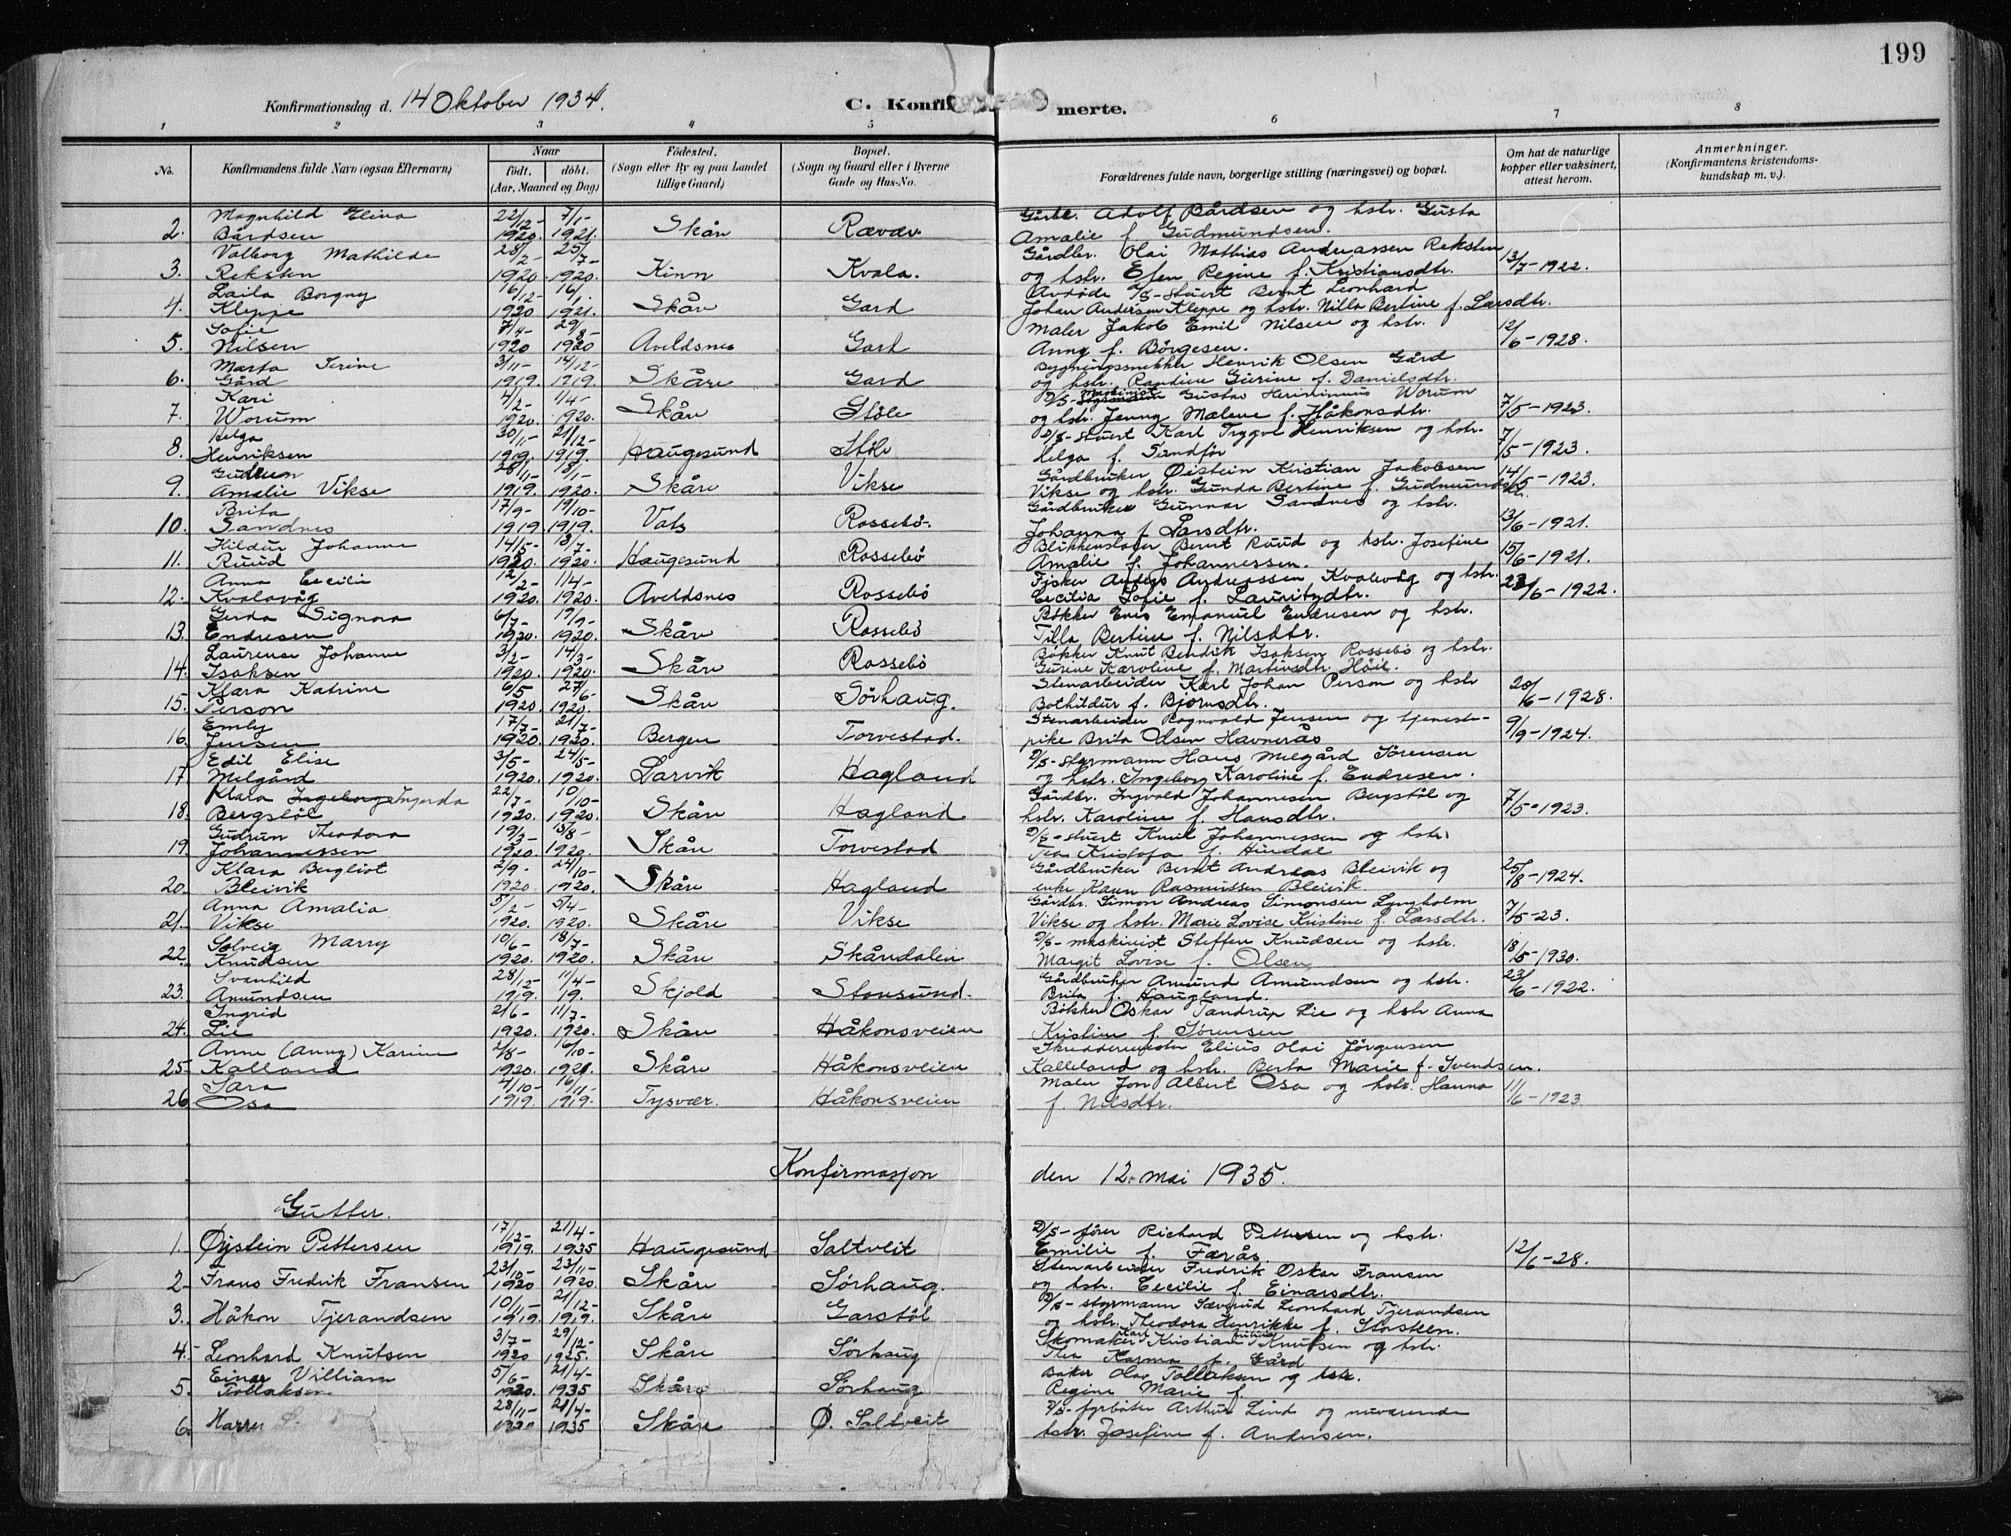 199
Konfirmationsdag d. 14 Oktober 1934.
C. Konfi merte.
1 2 3 4 5 6 7 8
No. Konfirmandens fulde Navn (ogsaa Efternavn) Naar født. døbt. (Aar, Maaned og Dag) Fødested. (Sogn eller By og paa Landet tillige Gaard) Bopæl. (Sogn og Gaard eller i Byerne Gade og Hus-No. Forældrenes fulde navn, borgerlige stilling (næringsvei) og bopæl. Om hat de naturlige kopper eller vaksinert, attest herom. Anmerkninger. (Konfirmantens kristendomskundskap m. v.).
2. Magnhild Elina Bårdsen 22/12-1920. 7/1-1921. Skåre Røvær Gårbr. Adolf Bårdsen og hstr. Gusta Amalie f. Gudmundsen.
3. Valborg Mathilde Reksten 28/2-1920. 25/7-1920. Kinn Kvala. Gårdbr. Olai Mathias Andreassen Reksten og hstr. Elen Regine f. Kristiansdtr. 13/7-1922.
4. Laila Borgny Kleppe 16/12-1920 16/1-1921. Skåre Gard Avdøde D/S-stuert Bernt Leonhard Johan Andersen Kleppe og hstr. Nilla Bertine f. Larsdtr.
5. Sofie Nilsen 7/4-1920 29/8-1920 Avaldsnes Gard Maler Jakob Emil Nilsen og hstr. Anna f. Børgesen. 12/6-1928.
6. Marta Serine Gård 3/11-1919. 14/12-1919. Skåre Gard Bygningssnekker Henrik Olsen Gård og hstr. Randine Gurine f. Danielsdtr.
7. Kari Worum 4/2-1920. 1/4-1920. Skåre Støle D/S-maskinist Gustav Worum og hstr. Jenny Malene f. Håkonsdtr. 7/5-1923.
8. Helga Henriksen 30/11-1919. 21/12-1919. Haugesund Støle D/S-stuert Karl Trygve Henriksen og hstr. Helga f. Sandfør 7/5-1923.
9. Gudrun Amalie Vikse 28/11-1919. 18/1-1920. Skåre Vikse Gårdbruker Øistein Kristian Jakobsen Vikse og hstr. Gunda Bertine f. Gudmundsdtr. 14/5-1923.
10. Brita Sandnes 17/9-1919. 19/10-1919. Vats Rossebø- Gårdbruker Gunnar Sandnes og hstr. Johanna f. Larsdtr. 13/6-1921.
11. Hildur Johanne Ruud 14/5-1920. 18/7-1920. Haugesund Rossebø Blikkenslager Bernt Ruud og hstr. Josefine Amalie f. Johannessen. 15/6-1921.
12. Anna Cecilie Kvalavåg 12/2-1920. 11/4-1920. Avaldsnes Rossebø Fisker Anders Andreassen Kvalevåg og hstr. Cecilia Sofie f. Lauritzdtr. 23/6-1922.
13. Gerda Signora Endresen 6/7-1920. 19/9-1920. Skåre Rossebø Bøkker Enes Emanuel Endresen og hstr. Tilla Bertine f. Nilsdtr.
14. Laurense Johanne Isaksen 3/2-1920. 14/3-1920. Skåre Rossebø Bøkker Knut Bendik Isaksen Rossebø og hstr. Gurine Karoline f. Martinsdtr. Høie.
15. Klara Katrine Person 6/5 1920 27/6-1920. Skåre Sørhaug. Stenarbeider Karl Johan Person og hstr Bothildur f. Bjørnsdtr. 20/6-1928.
16. Emly Jensen 17/7-1920. 21/7-1920. Bergen Torvestad. Stenarbeider Ragnvald Jensen og tjenestepike Brita Olsen Havnerås 9/9-1924.
17 Edit Elise Melgård 3/5-1920. 24/5-1920. Larvik Hagland D/S-styrmann Hans Melgård Sørensen og hstr. Ingeborg Karoline f. Endresen.
18. Klara Ingeborg Ingerda Bergstøl 22/7-1920. 10/10-1920. Skåre Hagland Gårdbr. Ingvald Johannesen Bergstøl og hstr. Karoline f. Hansdtr. 7/5-1923.
19. Gudrun Theodora Johannessen 19/3-1920. 15/8-1920. Skåre Torvestad D/S-stuert Knut Johannessen og hstr. Tea Kristofa f. Hindal
20. Klara Bergliot Bleivik 2/9-1920 24/10-1920. Skåre Hagland Gårdbruker Bernt Andreas Bleivik og enke Karen Rasmussen Bleivik 25/8-1924.
21. Anna Amalia Vikse 5/2-1920. 5/4-1920. Skåre Vikse Gårdbr. Simon Andreas Simonsen Lyngholm Vikse og hstr. Marie Lovise Kristine f. Larsdtr. 7/5-23.
22. Solveig Marry Knudsen 10/6-1920. 18/7-1920. Skåre Skåredalen D/S-maskinist Steffen Knudsen og hstr. Margit Lovise f. Olsen 18/5-1930.
23. Svanhild Amundsen 28/12-1919. 11/4-19. Skjold Stonsund. Gårdbruker Amund Amundsen og hstr. Brita f. Haugland. 23/6-1922.
24. Ingrid Lie 2/6-1920. 11/7-1920. Skåre Håkonsveien Bøkker Oskar Tandrup Lie og hstr Anna Kristine f. Sørensen
25- Anne (Anny) Karine Kalland 2/8-1920. 16/10-1921. Skåre Håkonsveien Skreddermester Elius Olai Jørgensen Kalleland og hstr. Berta Marie f. Svendsen.
26 Sara Osa 4/10-1919. 16/11-1919. Tysvær. Håkonsveien Maler Jon Albert Osa og hstr. Hanna f. Nilsdtr. 11/6-1923
Konfirmasjon den 12. mai 1935.
Gutter.
1. Øystein Pettersen 17/12-1919. 21/4-1935 Haugesund Saltveit D/S-fører Richard Pettersen og hstr. Emilie f. Færås 12/6-28.
2- Frans Fredrik Fransen 23/10-1920 23/11-1920. Skåre Sørhaug. Stenarbeider Fredrik Oskar Fransen og hstr. Cecilie f. Einarsdtr.
3. Håkon Tjerandsen 10/11-1919. 21/12-1919. Skåre Garstøl D/S-styrmann Sæverud Leonhard Tjerandsen og hstr. Theodora Henrikke f. Storsteen.
4- Leonhard Knutsen 3/7-1920 29/12-1925. Skåre Sørhaug Skomaker Karl Kristian Julius Knutsen og hstr. Thea Karma f. Gård
5. Einar William Tollaksen 5/6-1920. 21/4-1935 Skåre Sørhaug Baker Olav Tollaksen og hstr. Regine Marie f.
6. Harry 28/11-1920 21/4-1935 Skåre Ø. Saltveit D/S-fyrbøter Arthur Lind og nuværende hstr. Josefine f. Andersen.